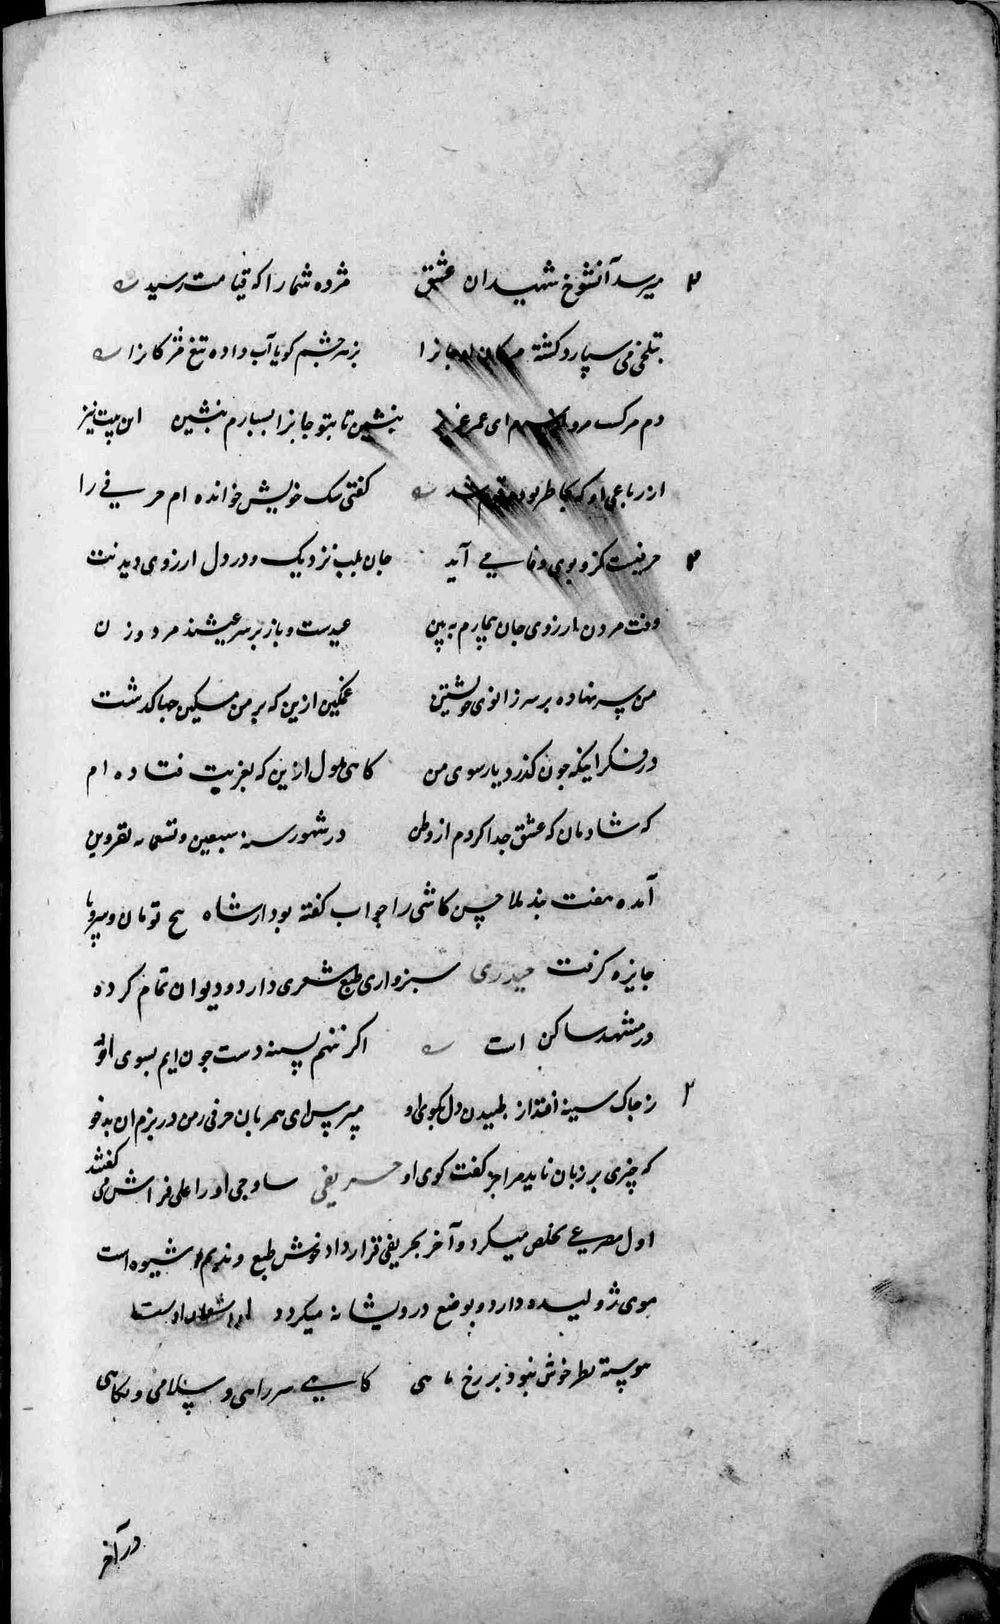 ۲ میرسد آنشوخ شهیدان عشق مژده شما را که قیامت رسید
بتلخی می سپارد کشته جانرا بزهر چشم کویا آب داده تیغ مژکانرا
دم مرکست مرو ای عمر عزیز بنشین تا بتو جانرا بسپارم بنشین این بیت نیز
از رباعی او که بخاطر بود شد کفتی سک خویش خوانده ام حریفی را
۲ حرفیست کزو بوی وفا می آید جان بلب نزدیک و در دل ارزوی دیدنت
وقت مردن ارزوی جان بیمارم به بین عیدست و باز بر سر عیشند مرد و زن
من سر نهاده بر سر زانوی خویشتن غمکین ازین که بر من مسکین جها کدشت
در فکر اینکه جون کذرد یار سوی من کاهی ملول ازین که بغربت فتاده ام
که شادمان که عشق جدا کردم از وطن در شهور سنه سبعین و تسعمایه بقزوین
آمده هفت بند ملا حسن کاشی را جواب کفته بود از شاه پنج تومان و سروپا
جایزه کرفت حیدری سبزواری طبع شعری دارد و دیوان تمام کرده
در مشهد ساکن است اکر ننهم بسینه دست جون ایم بسوی او
۲ ز جاک سینه افتد از طپیدن دل بکوی او مپرس ای همزبان حرفی ز من در بزم ان بدخو
که چیزی بر زبان ناید مرا جز کفت کوی او حریفی ساوجی او را علی فراش می کفتند
اول مصرعی تخلص میکرد و آخر بحریفی قرار داد خوش طبع و ندیم شیوه است
موی ژولیده دارد و بوضع درویشانه میکردد این اشعار از اوست
پیوسته نظر خوش نبود بر رخ ماهی کاهی سر راهی و سلامی و نکاهی
در آخر